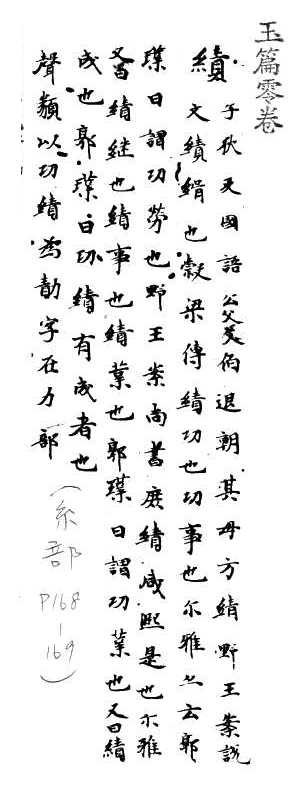 玉篇零卷
績 子狄反國語公父文伯退朝其母方績野王案說
文績緝也穀梁傳績功也功事也尔雅亦云郭
璞曰謂功勞也野王案尚書庶績咸熙是也尔雅
又曰績継也績事也績業也郭璞曰謂功業也又曰績
成也郭璞曰功績有成者也
聲類以功績為勣字在力部
(糸部 P168-169)